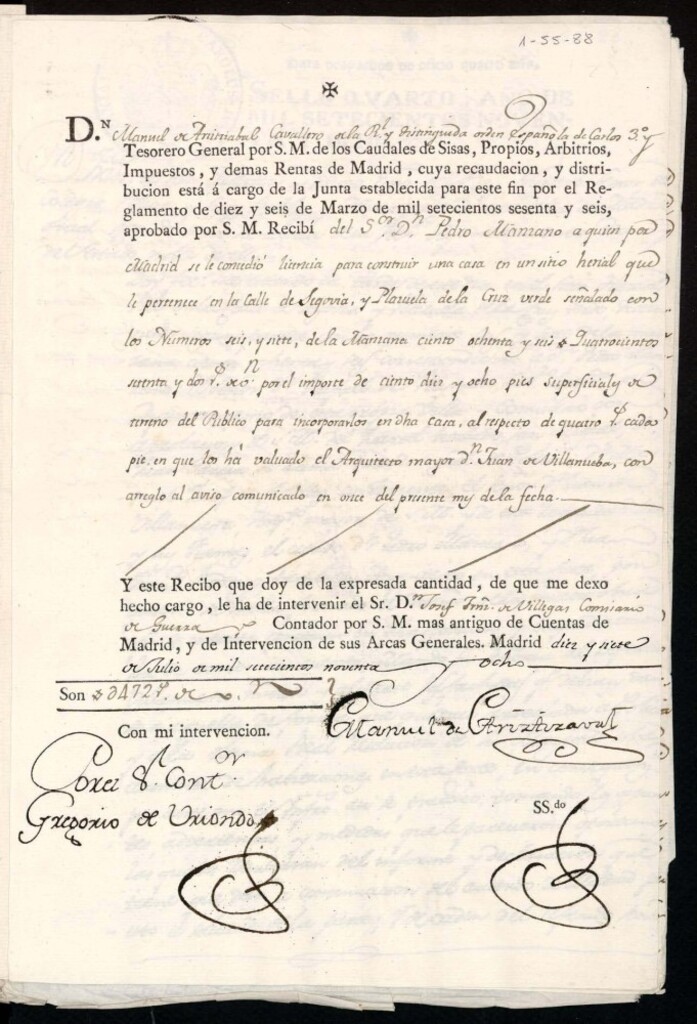 1-55-88
✠
D.ⁿ Manuel de Ariztizabal Cavallero de la Rl. y distinguida orden Española de Carlos 3.º y
Tesorero General por S. M. de los Caudales de Sisas, Propios, Arbitrios,
Impuestos, y demas Rentas de Madrid, cuya recaudacion, y distri-
bucion está á cargo de la Junta establecida para este fin por el Re-
glamento de diez y seis de Marzo de mil setecientos sesenta y seis,
aprobado por S. M. Recibí del S.ʳ D.ⁿ Pedro Manzano a quien por
Madrid se le concedió licencia para construir una casa en un sitio herial que
le pertenece en la Calle de Segovia, y Plazuela de la Cruz verde señalado con
los Numeros seis, y siete, de la Manzana ciento ochenta y seis Quatrocientos
setenta y dos r.ˢ de v.ⁿ por el importe de ciento diez y ocho pies superficiales de
terreno del Publico para incorporarlos en dha casa, al respecto de quatro r.ˢ cada
pie, en que los ha valuado el Arquitecto mayor d.ⁿ Juan de Villanueba, con
arreglo al aviso comunicado en once del presente mes de la fecha.
Y este Recibo que doy de la expresada cantidad, de que me dexo
hecho cargo, le ha de intervenir el Sr. D.ⁿ Josef de Villegas Comisario
de Guerra Contador por S. M. mas antiguo de Cuentas de
Madrid, y de Intervencion de sus Arcas Generales. Madrid diez y siete
de Julio de mil setecientos noventa y ocho
Son 472 r.ˢ de v.ⁿ
Manuel de Ariztizaval
Con mi intervencion.
Por el S.ʳ Cont.ʳ
Gregorio de Uriondo
SS.do